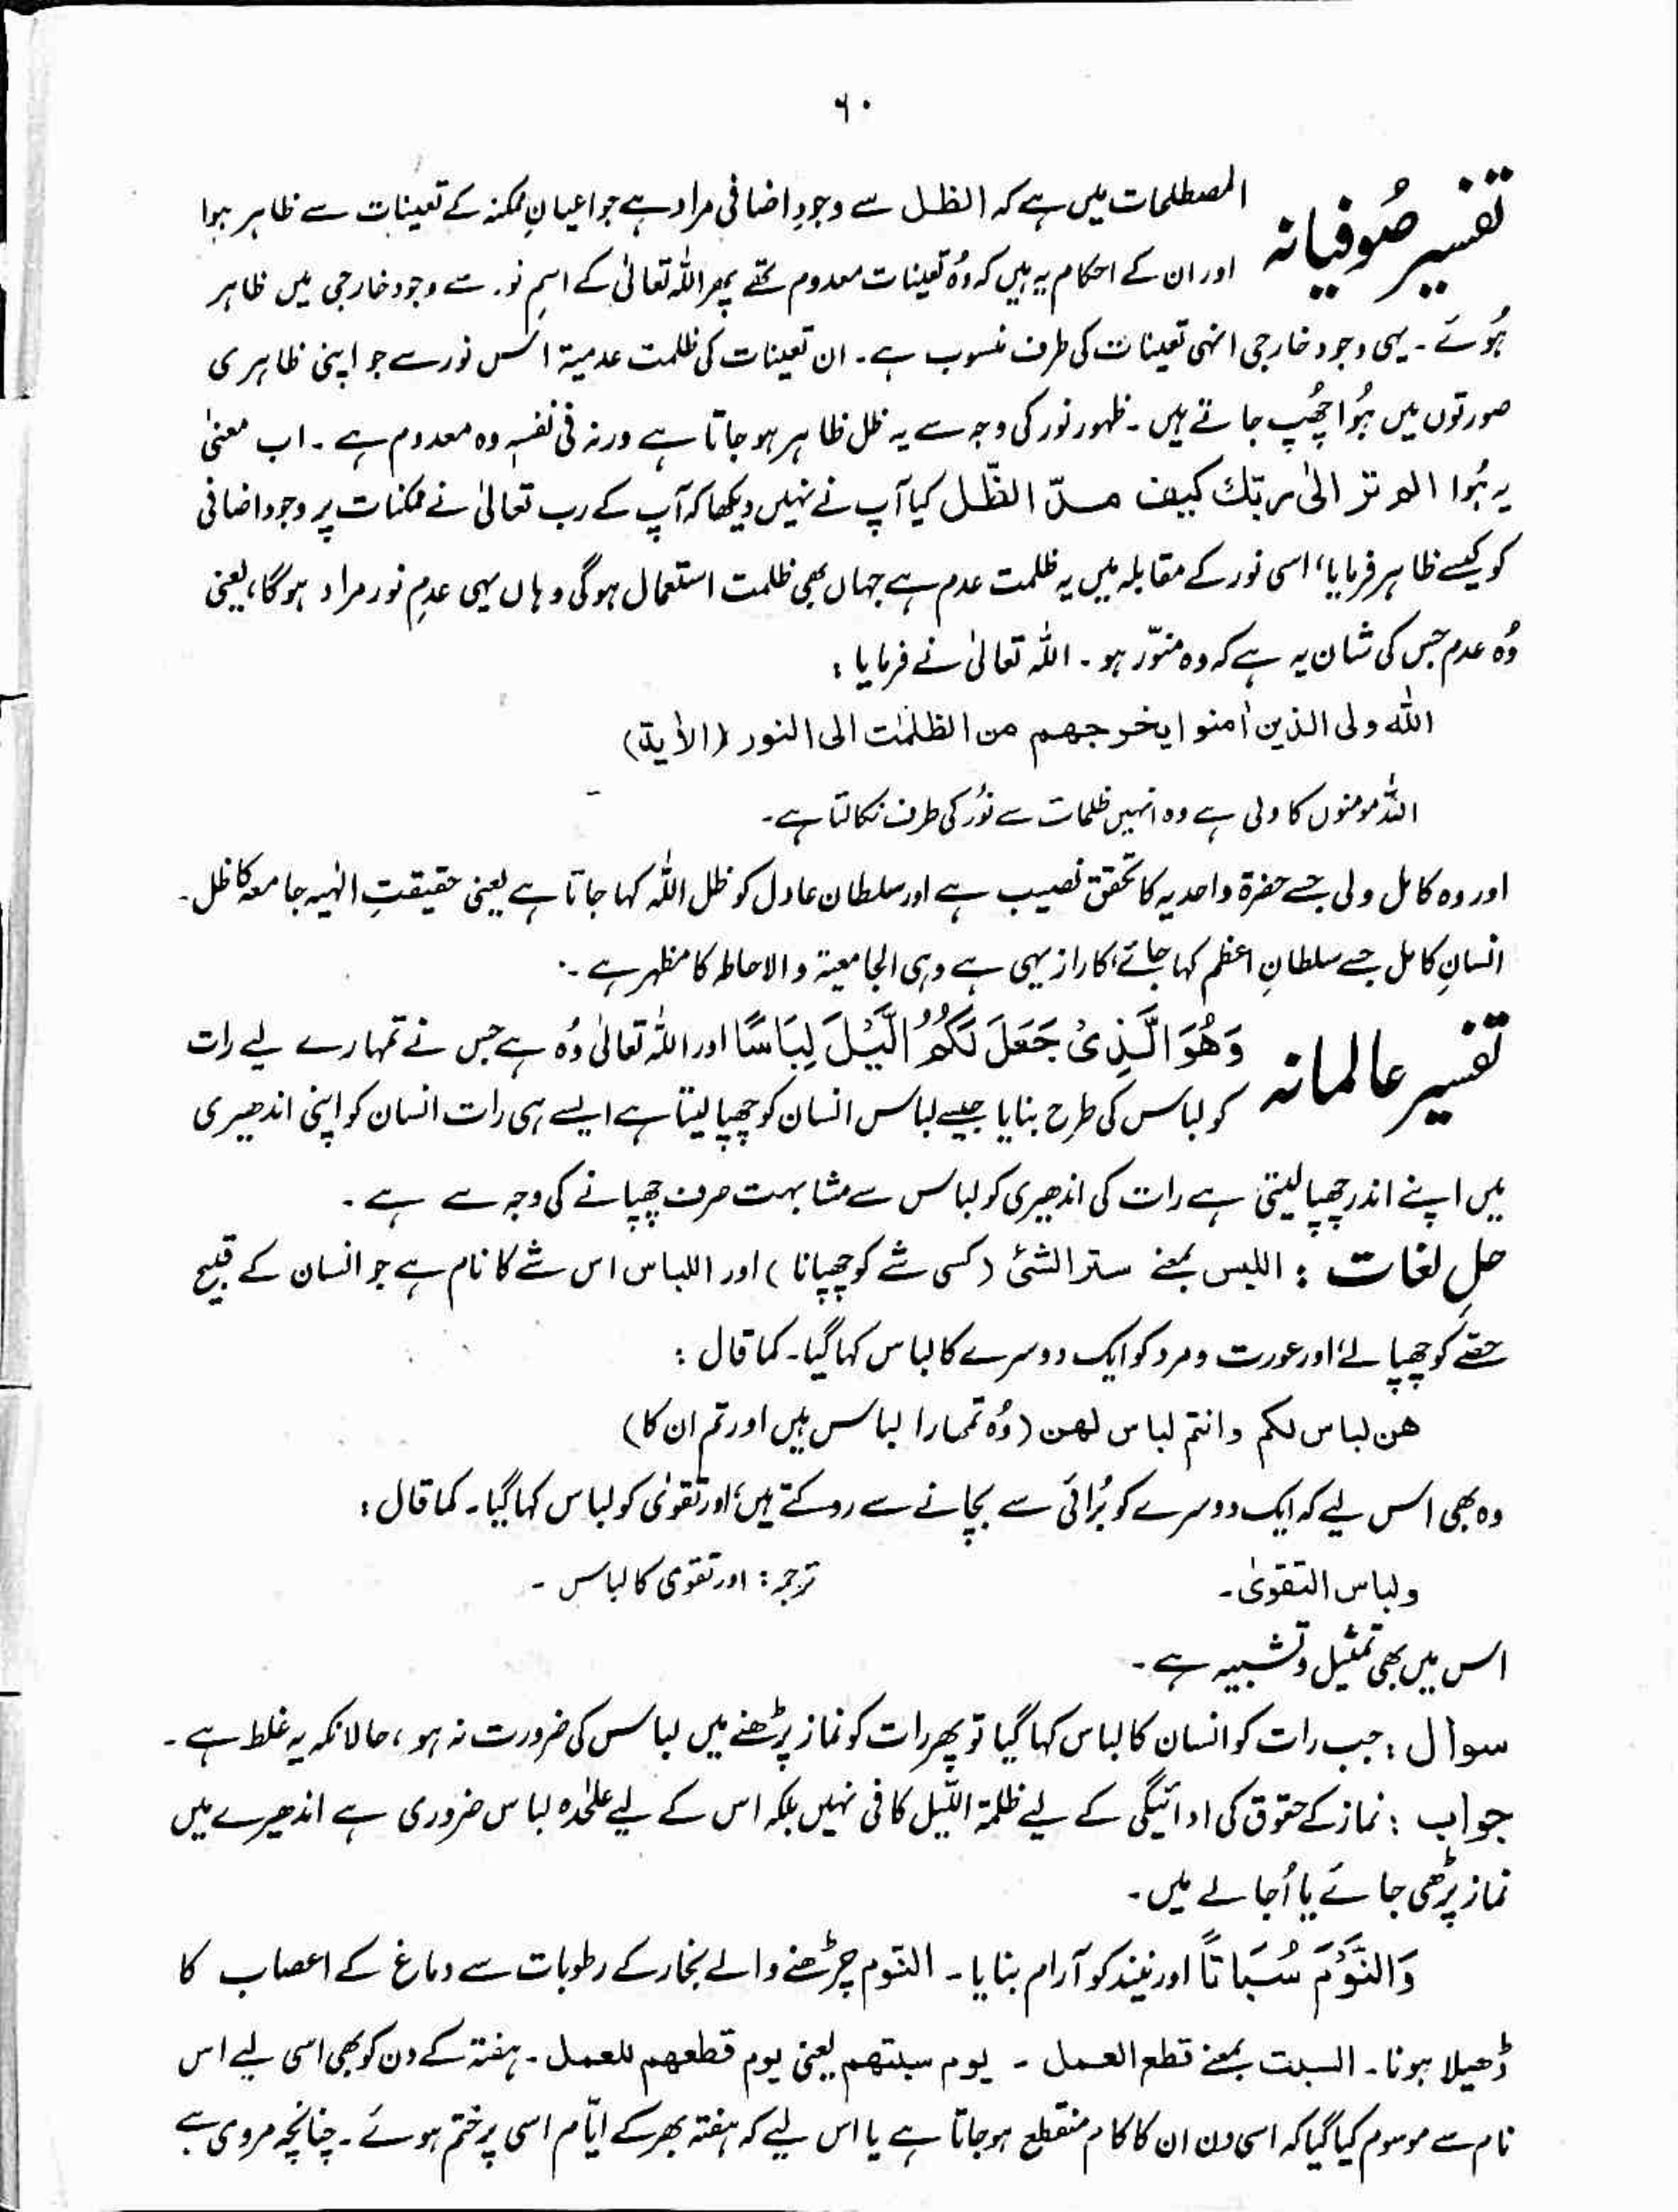 ۶۰
تفسیر صُوفیانہ المصطلحات میں ہے کہ الظل سے وجودِ اضافی مراد ہے جو اعیانِ ممکنہ کے تعینات سے ظاہر ہوا
اور ان کے احکام یہ ہیں کہ وُہ تعینات معدوم تھے پھر اللہ تعالیٰ کے اسمِ نور سے وجود خارجی میں ظاہر
ہُوئے ۔ یہی وجود خارجی انہی تعینات کی طرف منسوب ہے ۔ ان تعینات کی ظلمت عدمیۃ اس نور سے جو اپنی ظاہری
صورتوں میں ہُوا چُھپ جاتے ہیں ۔ ظہور نور کی وجہ سے یہ ظل ظاہر ہو جاتا ہے ورنہ فی نفسہٖ وہ معدوم ہے ۔ اب معنیٰ
یہ ہُوا الم تر الیٰ ربّک کیف مدّ الظّل کیا آپ نے نہیں دیکھا کہ آپ کے رب تعالیٰ نے ممکنات پر وجود اضافی
کو کیسے ظاہر فرمایا، اسی نور کے مقابلہ میں یہ ظلمت عدم ہے جہاں بھی ظلمت استعمال ہوگی وہاں یہی عدمِ نور مراد ہوگا، یعنی
وُہ عدم جس کی شان یہ ہے کہ وہ منوّر ہو ۔ اللہ تعالیٰ نے فرمایا :
اللہ ولی الذین اٰمنوا یخرجھم من الظلمٰت الی النور (الاٰیۃ)
اللہ مومنوں کا ولی ہے وہ انہیں ظلمات سے نُور کی طرف نکالتا ہے ۔
اور وہ کامل ولی جسے حضرۃ واحدیہ کا تحقق نصیب ہے اور سلطان عادل کو ظل اللہ کہا جاتا ہے یعنی حقیقتِ الٰہیہ جامعہ کا ظل ۔
انسانِ کامل جسے سلطانِ اعظم کہا جائے، کا راز یہی ہے وہی الجامعیۃ والاحاطہ کا مظہر ہے ۔
تفسیر عالمانہ وَهُوَ الَّذِیْ جَعَلَ لَكُمُ الَّيْلَ لِبَاسًا اور اللہ تعالیٰ وُہ ہے جس نے تمہارے لیے رات
کو لباس کی طرح بنایا جیسے لباس انسان کو چھپا لیتا ہے ایسے ہی رات انسان کو اپنی اندھیری
میں اپنے اندر چھپا لیتی ہے رات کی اندھیری کو لباس سے مشابہت صرف چھپانے کی وجہ سے ہے ۔
حلِ لغات : اللبس بمعنے ستر الشئ (کسی شے کو چھپانا) اور اللباس اس شے کا نام ہے جو انسان کے قبیح
حصّے کو چھپا لے، اور عورت و مرد کو ایک دوسرے کا لباس کہا گیا ۔ کما قال :
ھن لباس لکم وانتم لباس لھن (وُہ تمہارا لباس ہیں اور تم ان کا)
وہ بھی اس لیے کہ ایک دوسرے کو بُرائی سے بچانے سے روکتے ہیں، اور تقویٰ کو لباس کہا گیا ۔ کما قال :
ولباس التقویٰ ۔ ترجمہ : اور تقوی کا لباس ۔
اس میں بھی تمثیل و تشبیہ ہے ۔
سوال : جب رات کو انسان کا لباس کہا گیا تو پھر رات کو نماز پڑھنے میں لباس کی ضرورت نہ ہو ، حالانکہ یہ غلط ہے ۔
جواب : نماز کے حقوق کی ادائیگی کے لیے ظلمۃ اللّیل کافی نہیں بلکہ اس کے لیے علٰحدہ لباس ضروری ہے اندھیرے میں
نماز پڑھی جائے یا اُجالے میں ۔
وَالنَّوْمَ سُبَاتًا اور نیند کو آرام بنایا ۔ النّوم چڑھنے والے بخار کے رطوبات سے دماغ کے اعصاب کا
ڈھیلا ہونا ۔ السبت بمعنے قطع العمل ۔ یوم سبتھم یعنی یوم قطعھم للعمل ۔ ہفتہ کے دن کو بھی اسی لیے اس
نام سے موسوم کیا گیا کہ اسی دن ان کا کام منقطع ہو جاتا ہے یا اس لیے کہ ہفتہ بھر کے ایّام اسی پر ختم ہوئے ۔ چنانچہ مروی ہے